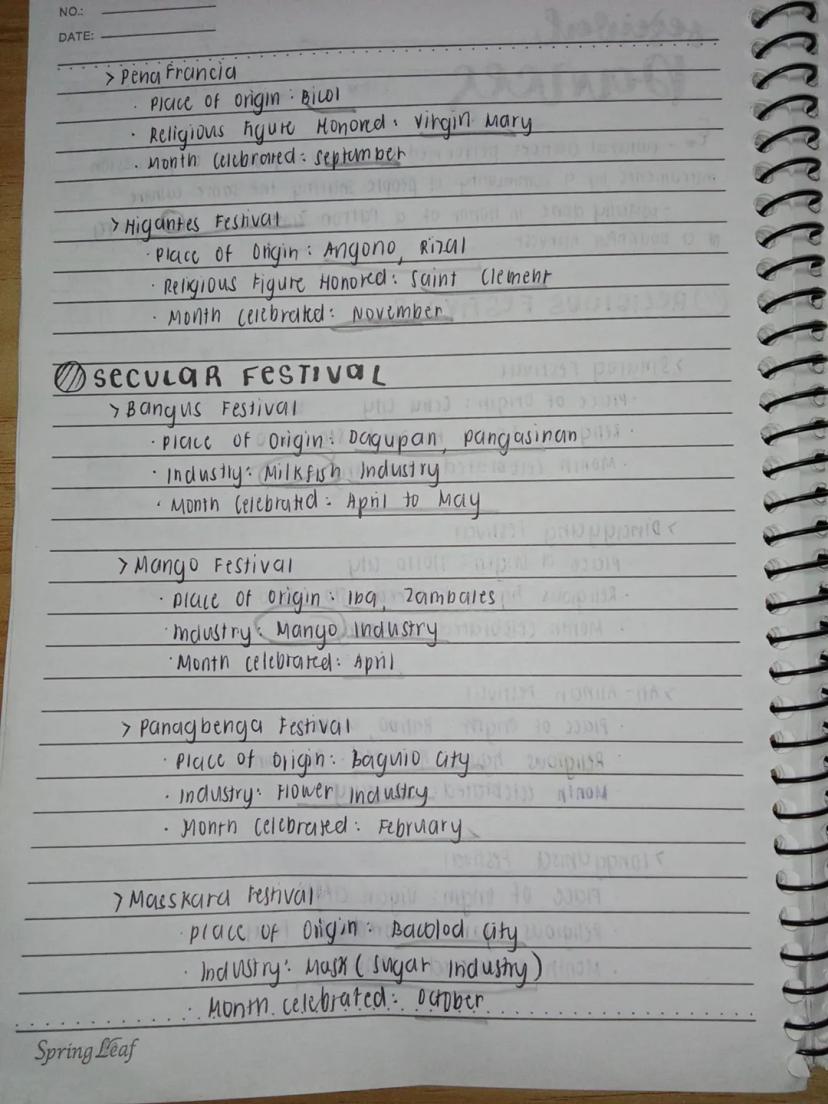 NO.:
DATE:
> Peña Francia
· Place of origin : Bicol
· Religious Figure Honored : Virgin Mary
· Month Celebrated : September
> Higantes Festival
· Place of Origin : Angono, Rizal
· Religious Figure Honored : Saint Clement
· Month Celebrated : November
SECULAR FESTIVAL
> Bangus Festival
· Place of Origin : Dagupan, Pangasinan
· Industry : Milkfish Industry
· Month Celebrated : April to May
> Mango Festival
· Place of origin : Iba, Zambales
· Industry : Mango Industry
· Month Celebrated : April
> Panagbenga Festival
· Place of Origin : Baguio City
· Industry : Flower Industry
· Month Celebrated : February
> Masskara Festival
· Place of Origin : Bacolod City
· Industry : Mask ( Sugar Industry )
· Month Celebrated : October
Spring Leaf